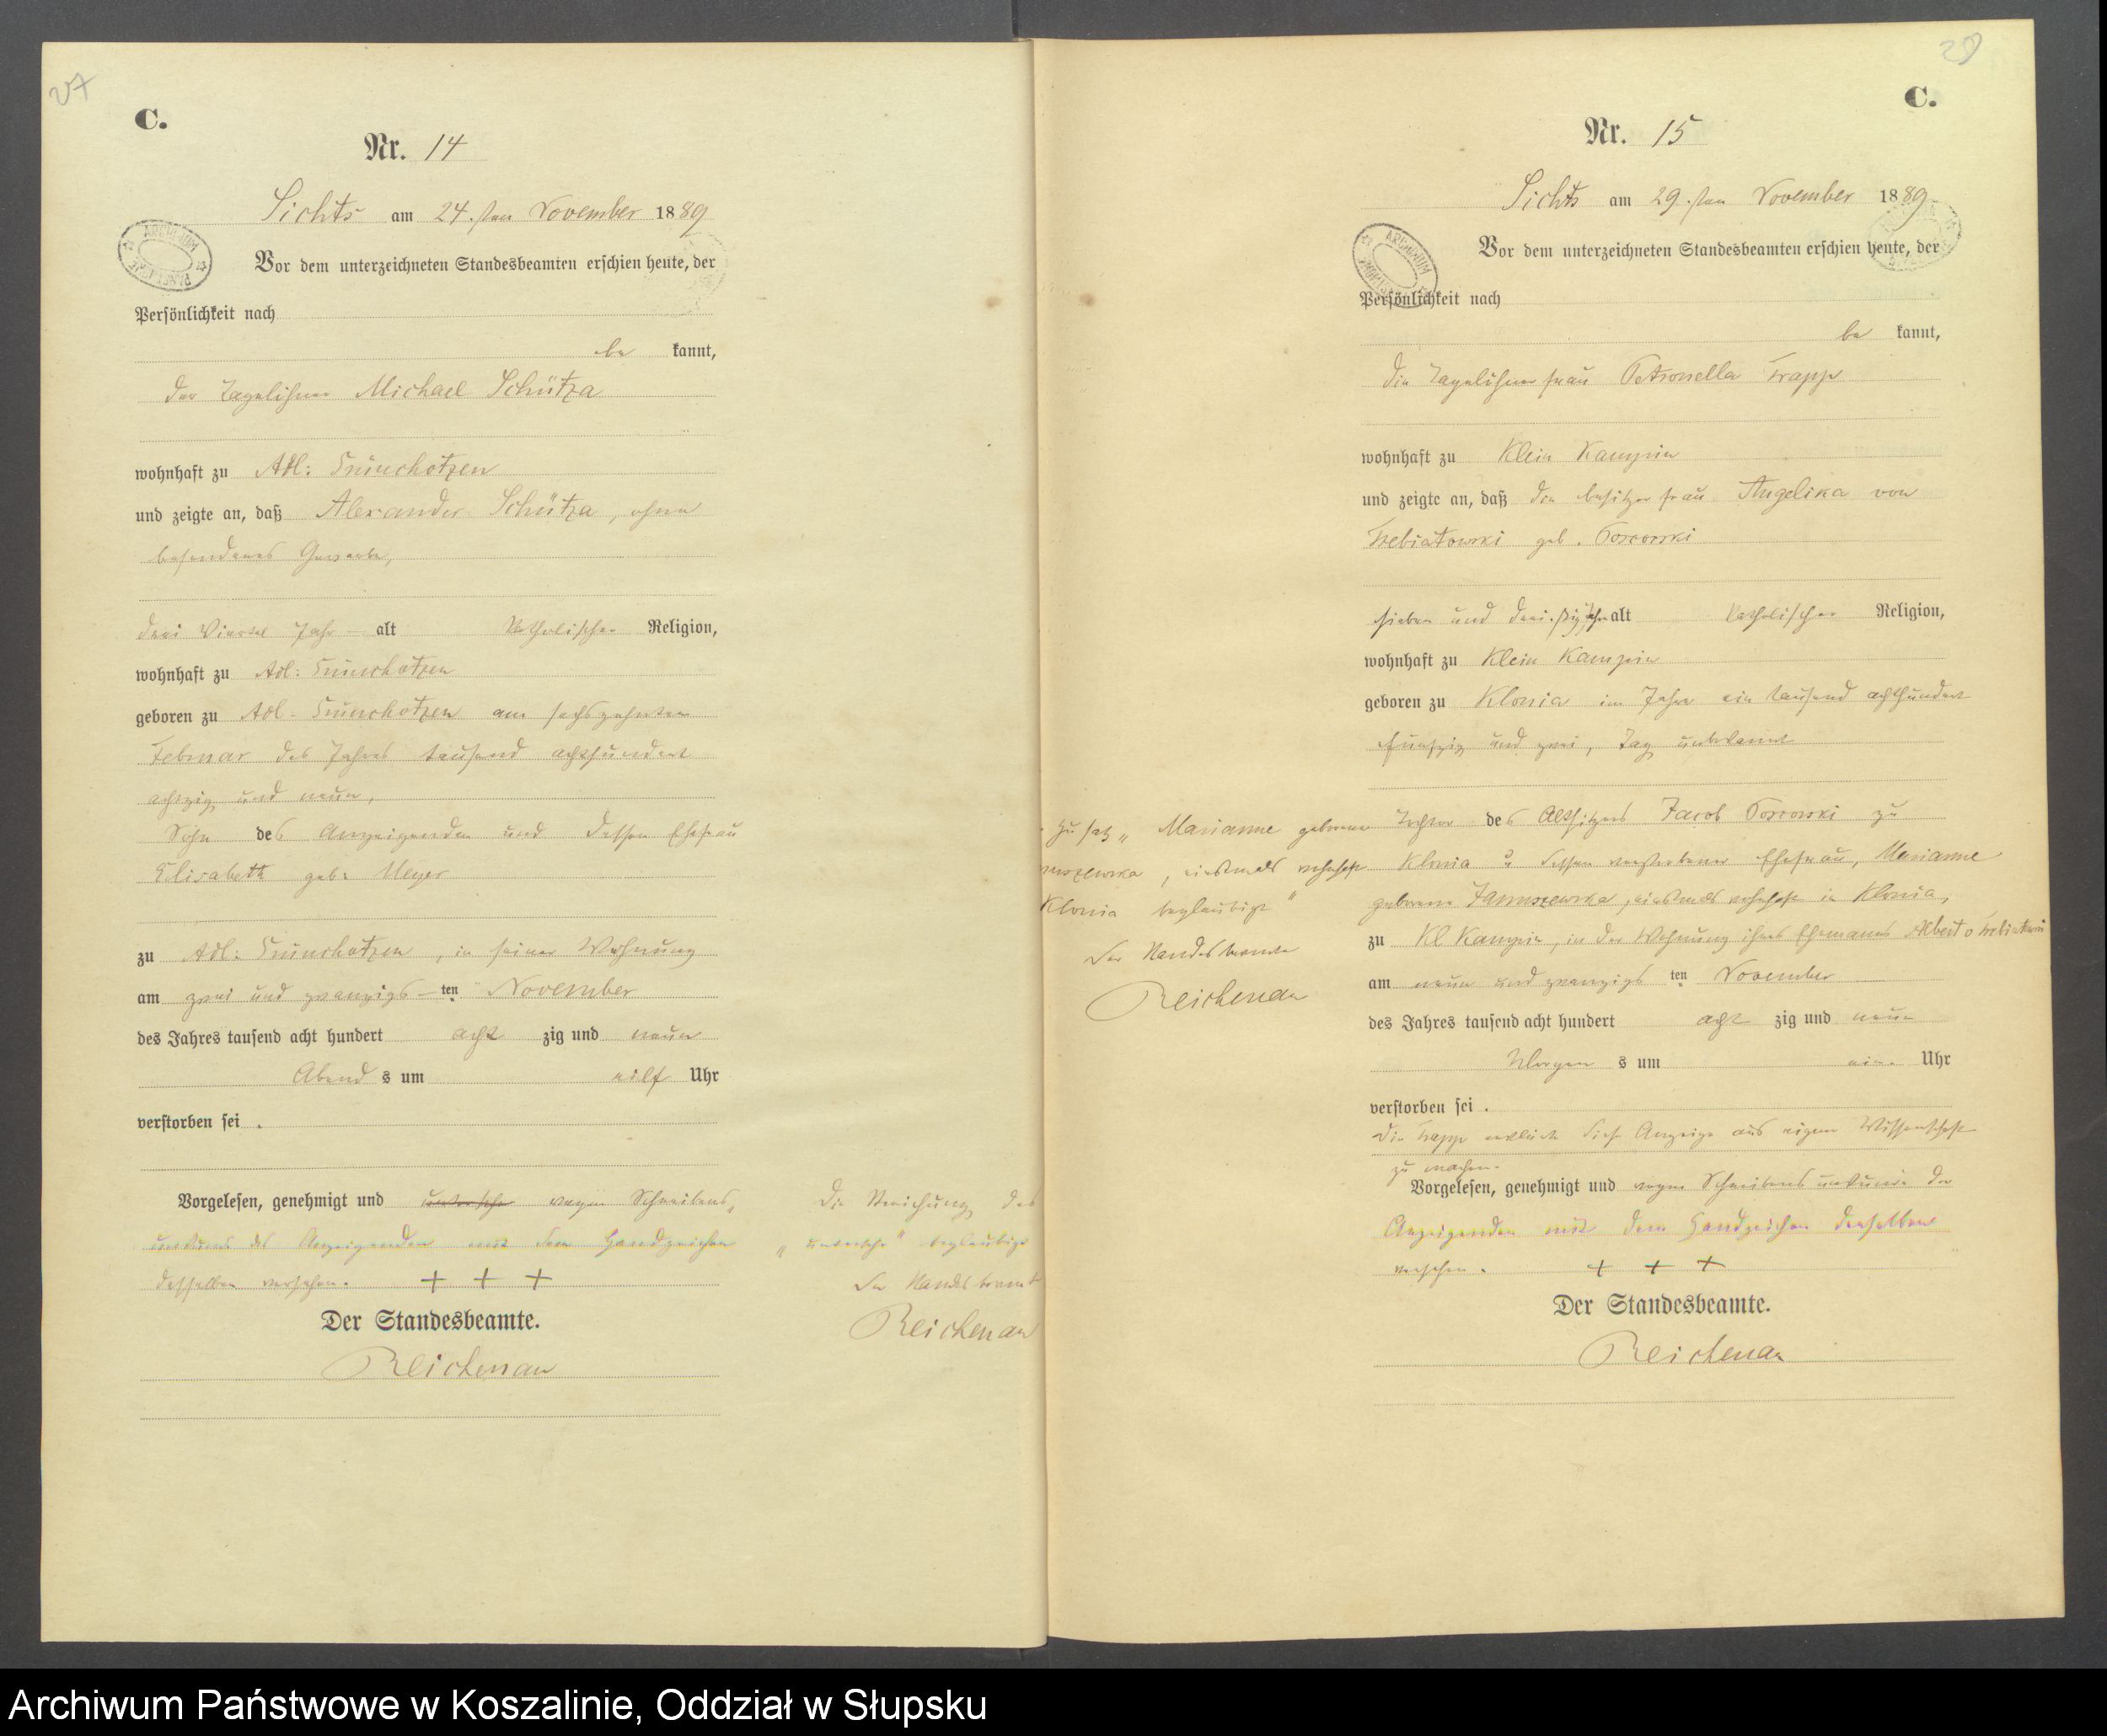 27
C.
Nr. 14
Sichts am 24. ten November 1889
Vor dem unterzeichneten Standesbeamten erschien heute, der
Persönlichkeit nach
be kannt,
der Tagelöhner Michael Schütza
wohnhaft zu Adl:
und zeigte an, daß Alexander Schütza, ohne
besonderes Gewerbe,
drei Viertel Jahr alt katholischer Religion,
wohnhaft zu Adl:
geboren zu Adl. am sechszehnten
Februar des Jahres tausend achthundert
achtzig und neun,
Sohn des Anzeigenden und dessen Ehefrau
Elisabeth geb. Meyer
zu Adl: , in seiner Wohnung
am zwei und zwanzigs ten November
des Jahres tausend acht hundert acht zig und neun
Abend s um eilf Uhr
verstorben sei .
Vorgelesen, genehmigt und untersche wegen Schreibens
unkunde des Anzeigenden mit dem Handzeichen
desselben versehen. + + +
Der Standesbeamte.
Reichenau
Die Streichung des
„ untersche " beglaubigt
Der Standesbeamte
Reichenau
29
C.
Nr. 15
Sichts am 29. ten November 1889
Vor dem unterzeichneten Standesbeamten erschien heute, der
Persönlichkeit nach
be kannt,
die Tagelöhnerfrau Petronella Trapp
wohnhaft zu Klein Kampin
und zeigte an, daß die Besitzerfrau Angelika von
Trebiatowski geb.
sieben und dreißig Jahr alt katholischer Religion,
wohnhaft zu Klein Kampin
geboren zu Klonia im Jahre ein tausend achthundert
fünfzig und zwei, Tag unbekannt
Tochter des Altsitzers Jacob zu
Klonia u dessen verstorbener Ehefrau, Marianne
geborene Januszewska, einstmals wohnhaft in Klonia,
zu Kl Kampin, in der Wohnung ihres Ehemannes Albert v Trebiatowski
am neun und zwanzigs ten November
des Jahres tausend acht hundert acht zig und neun
Morgen s um ein Uhr
verstorben sei .
Die Trapp erklärte diese Anzeige aus eigener Wissenschaft
zu machen.
Vorgelesen, genehmigt und wegen Schreibensunkunde der
Anzeigenden mit dem Handzeichen derselben
versehen. + + +
Der Standesbeamte.
Reichenau
Zusatz „ Marianne geborene
nuszewska, einstmals wohnhaft
Klonia beglaubigt "
Der Standesbeamte
Reichenau
Archiwum Państwowe w Koszalinie, Oddział w Słupsku